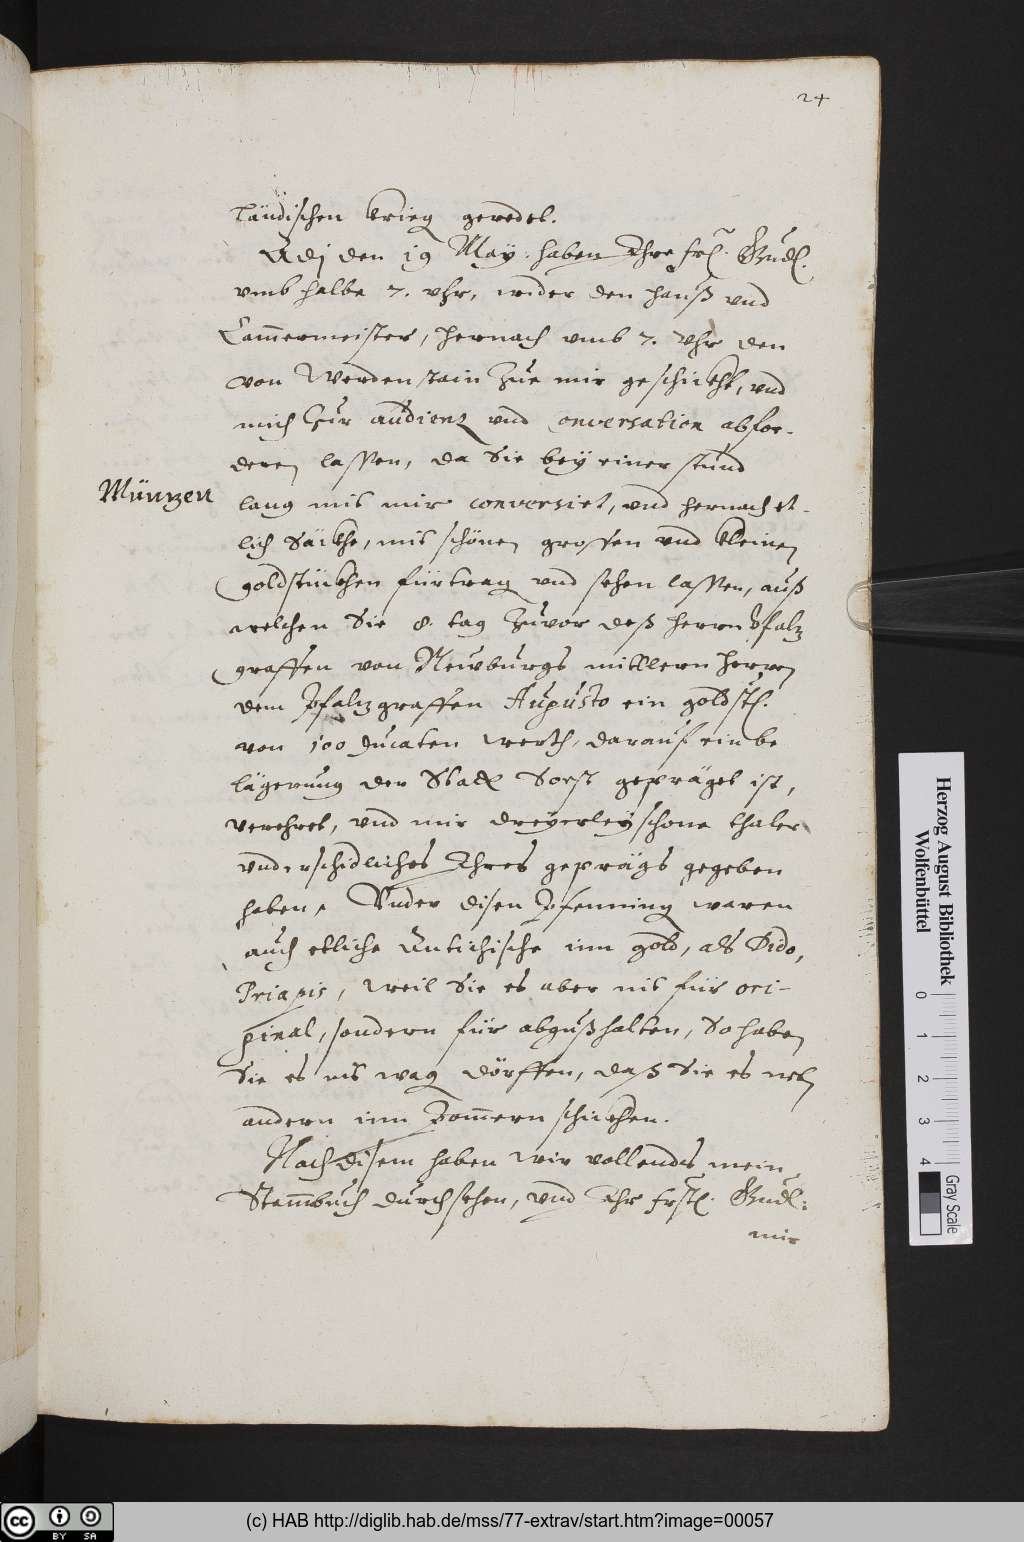 24
ländischen krieg geredet.
Adj den 19 May: haben Ihre frl. Gnd.
vmb halbe 7. vhr, wider den hauß vnd
Cam̄ermeister, hernach vmb 7. vhr den
von Werdenstain zue mir geschickht, vnd
mich zur audienz vnd Conversation abfor-
deren lassen, da Sie bey einer stund
Müntzen
lang mit mir conversiet, vnd hernach et-
lich Säckhe, mit schönen grossen vnd kleinen
goldstückhen fürtrag vnd sehen lassen, auß
welchen Sie 8. tag zuvor deß herrn Pfaltz
graffen von Newburgs mittlern herren
dem Pfaltzgraffen Augusto ein goldst.
von 100 ducaten werth, darauf ein be
lägerung der Statt Soest gepräget ist,
verehret, vnd mir dreyerley schöne thaler
vnderschidliches Ihres geprägs gegeben
haben. Vnder disen Pfenning waren
auch etliche Antichische inn gold, als Dido,
Priapis, weil Sie es aber nit für ori-
ginal, sondern für abguß halten, So haben
Sie es nit wag dörffen, daß Sie es nebn
andern inn Pom̄ern schickhen.
Nach disem haben wir vollends mein
Stam̄buch durchsehen, vnd Ihr frstl. Gnd:
mir
Herzog August Bibliothek
Wolfenbüttel
0 1 2 3 4
Gray Scale
cc BY SA
(c) HAB http://diglib.hab.de/mss/77-extrav/start.htm?image=00057